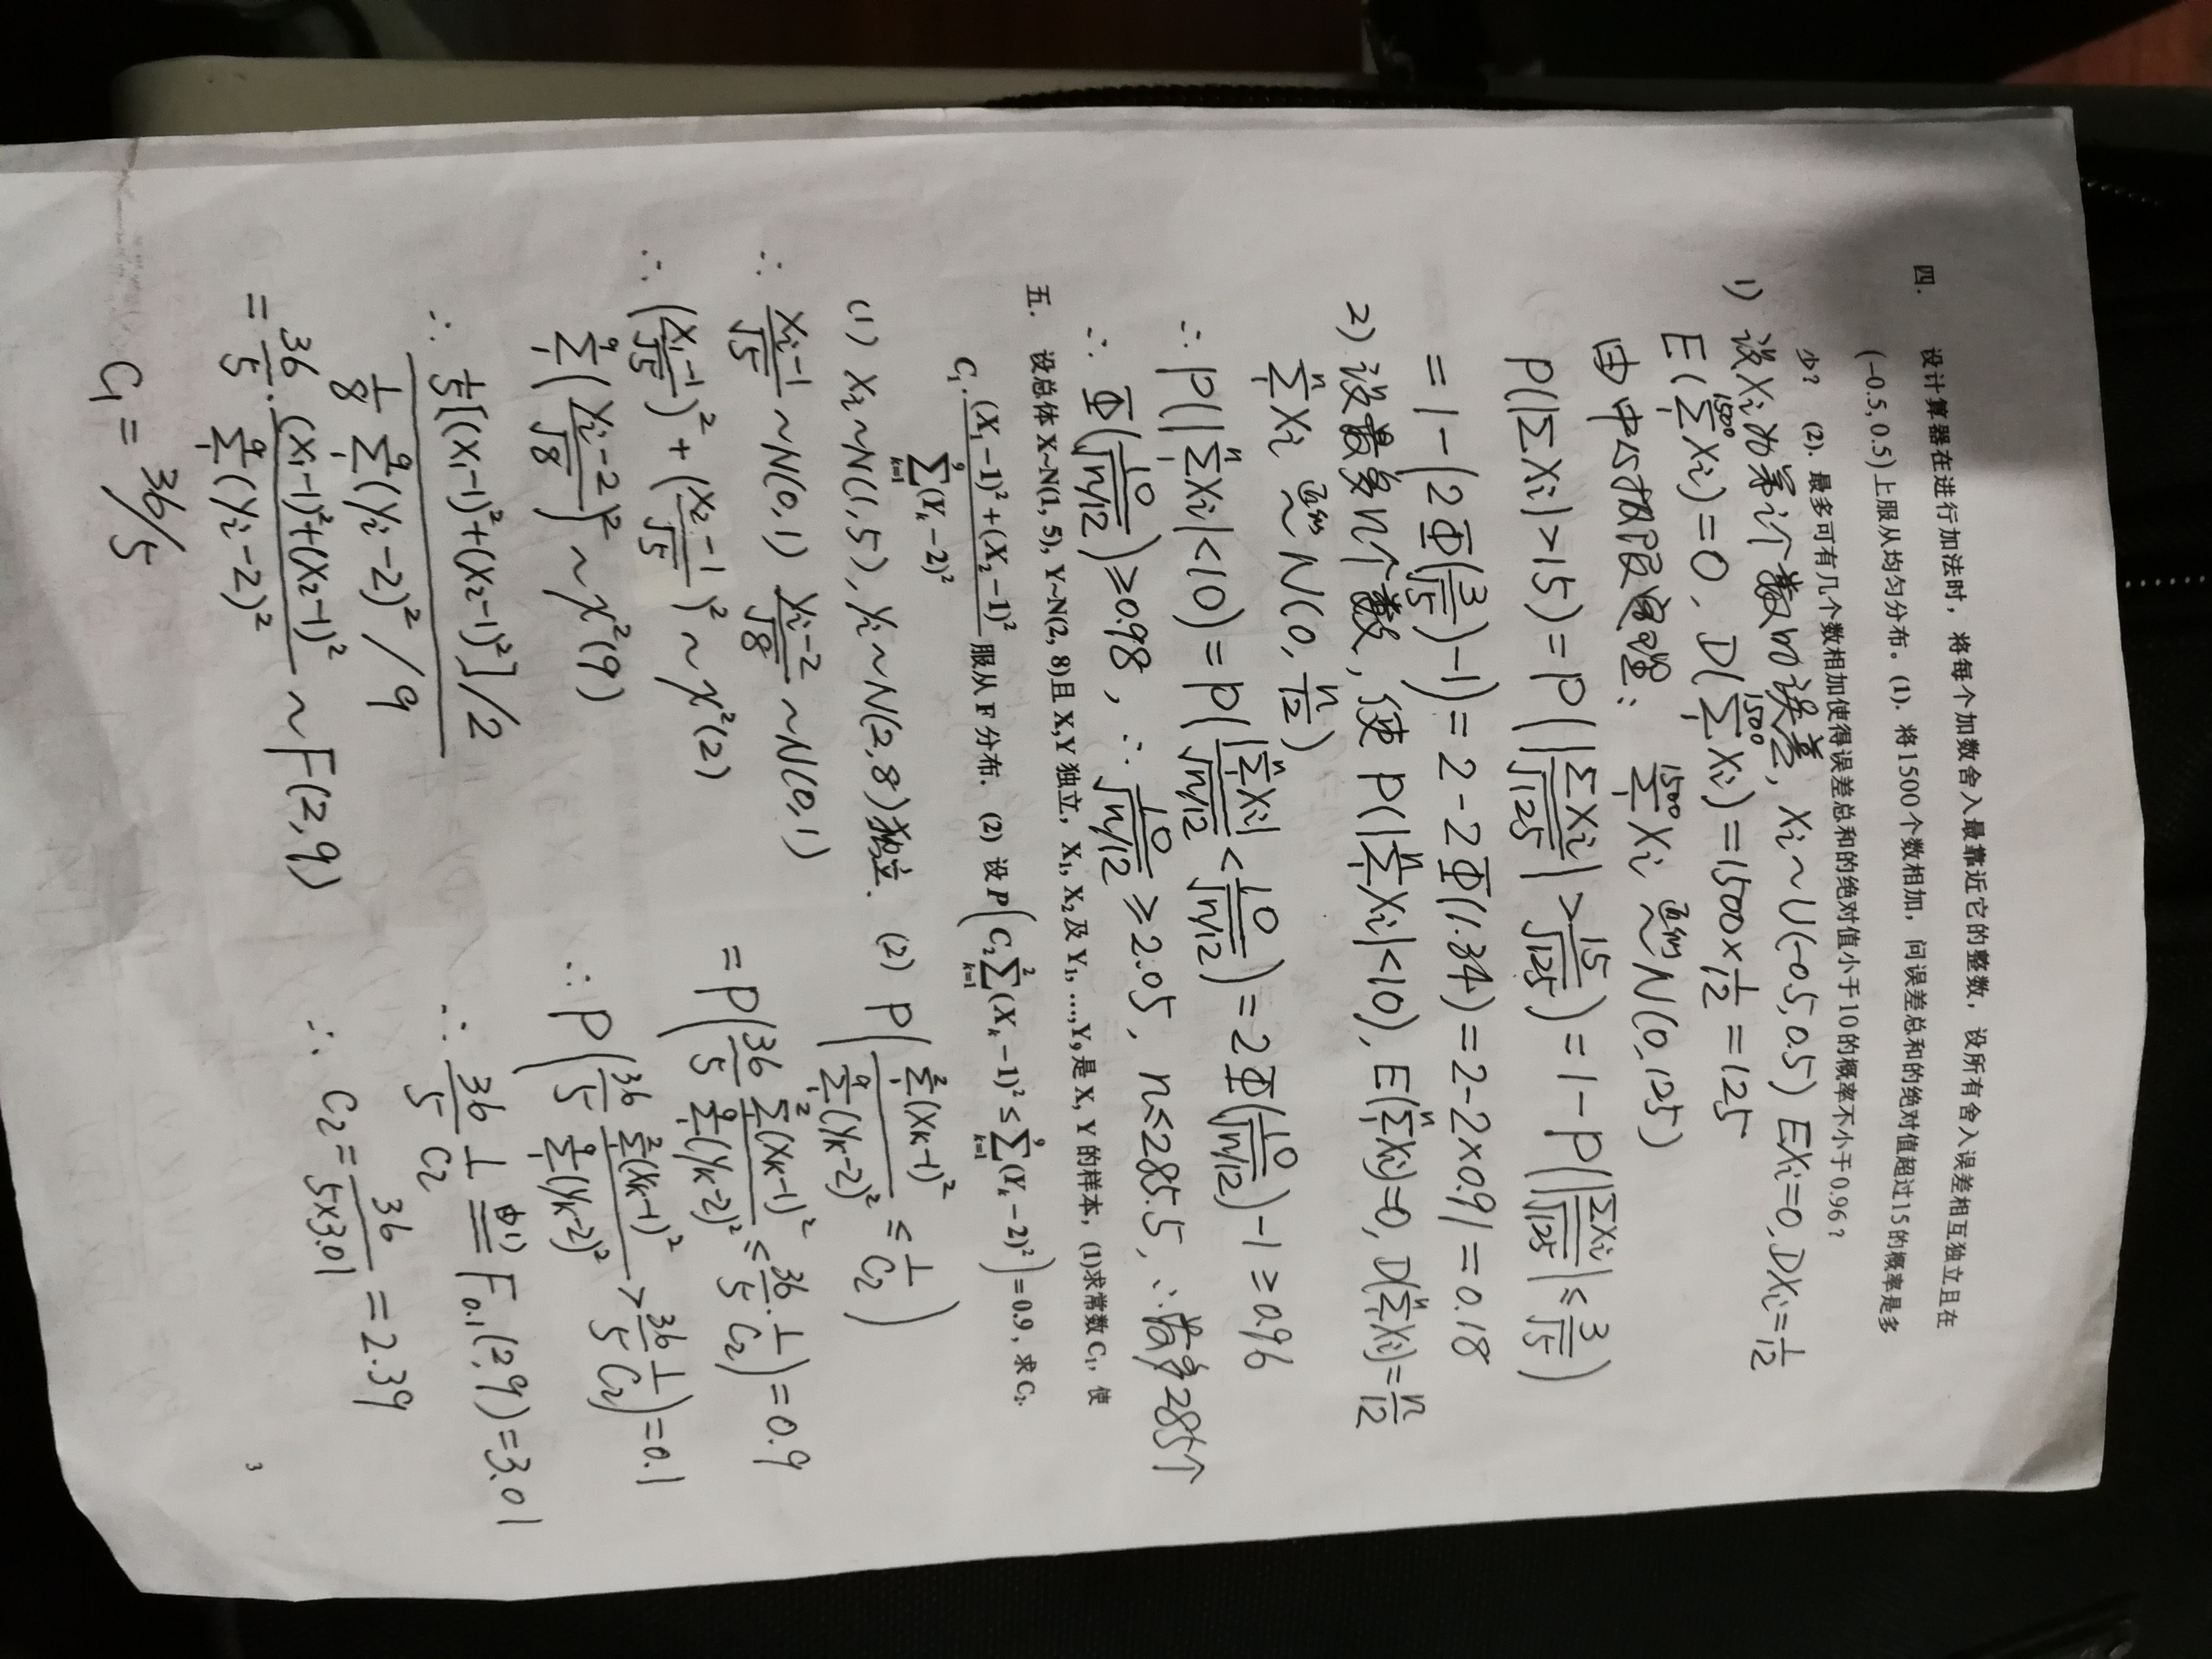 四. 设计算器在进行加法时，将每个加数舍入最靠近它的整数，设所有舍入误差相互独立且在
(−0.5, 0.5) 上服从均匀分布。(1). 将1500个数相加，问误差总和的绝对值超过15的概率是多
少？ (2). 最多可有几个数相加使得误差总和的绝对值小于10的概率不小于0.96？
1) 设Xi为第i个数的误差, Xi ~ U(-0.5, 0.5) EXi=0, DXi=1/12
E(∑₁¹⁵⁰⁰Xi)=0, D(∑₁¹⁵⁰⁰Xi)=1500×1/12=125
由中心极限定理: ∑₁¹⁵⁰⁰Xi 近似~ N(0, 125)
P(|∑Xi|>15)=P(|∑Xi|/√125 > 15/√125)=1-P(|∑Xi|/√125 ≤ 3/√5)
=1-(2Φ(3/√5)-1)=2-2Φ(1.34)=2-2×0.91=0.18
2) 设最多n个数, 使 P(|∑₁ⁿXi|<10), E(∑₁ⁿXi)=0, D(∑₁ⁿXi)=n/12
∑₁ⁿXi 近似~ N(0, n/12)
∴P(|∑₁ⁿXi|<10)=P(|∑₁ⁿXi|/√(n/12) < 10/√(n/12))=2Φ(10/√(n/12))-1≥0.96
∴ Φ(10/√(n/12))≥0.98, ∴ 10/√(n/12)≥2.05, n≤285.5, ∴最多285个
五. 设总体 X~N(1, 5), Y~N(2, 8)且 X,Y 独立, X₁, X₂ 及 Y₁, …,Y₉是 X, Y 的样本, (1)求常数 C₁, 使
C₁·((X₁−1)²+(X₂−1)²)/(∑ₖ₌₁⁹(Yₖ−2)²) 服从 F 分布. (2) 设 P(C₂∑ₖ₌₁²(Xₖ−1)² ≤ ∑ₖ₌₁⁹(Yₖ−2)²)=0.9, 求 C₂.
(1) Xi~N(1,5), Yi~N(2,8)独立.
∴ (Xi-1)/√5 ~N(0,1) (Yi-2)/√8 ~N(0,1)
∴ ((X₁-1)/√5)²+((X₂-1)/√5)² ~ χ²(2)
∑₁⁹((Yi-2)/√8)² ~ χ²(9)
∴ (1/5[(X₁-1)²+(X₂-1)²]/2)/(1/8∑₁⁹(Yi-2)²/9)
= 36/5·((X₁-1)²+(X₂-1)²)/(∑₁⁹(Yi-2)²) ~ F(2,9)
C₁ = 36/5
(2) P(∑₁²(Xk-1)²/∑₁⁹(Yk-2)² ≤ 1/C₂)
=P(36/5 ∑₁²(Xk-1)²/∑₁⁹(Yk-2)² ≤ 36/5·1/C₂)=0.9
∴P(36/5 ∑₁²(Xk-1)²/∑₁⁹(Yk-2)² > 36/5 1/C₂)=0.1
∴ 36/5 1/C₂ 由(1)= F₀.₁(2,9)=3.01
∴ C₂=36/(5×3.01)=2.39
3